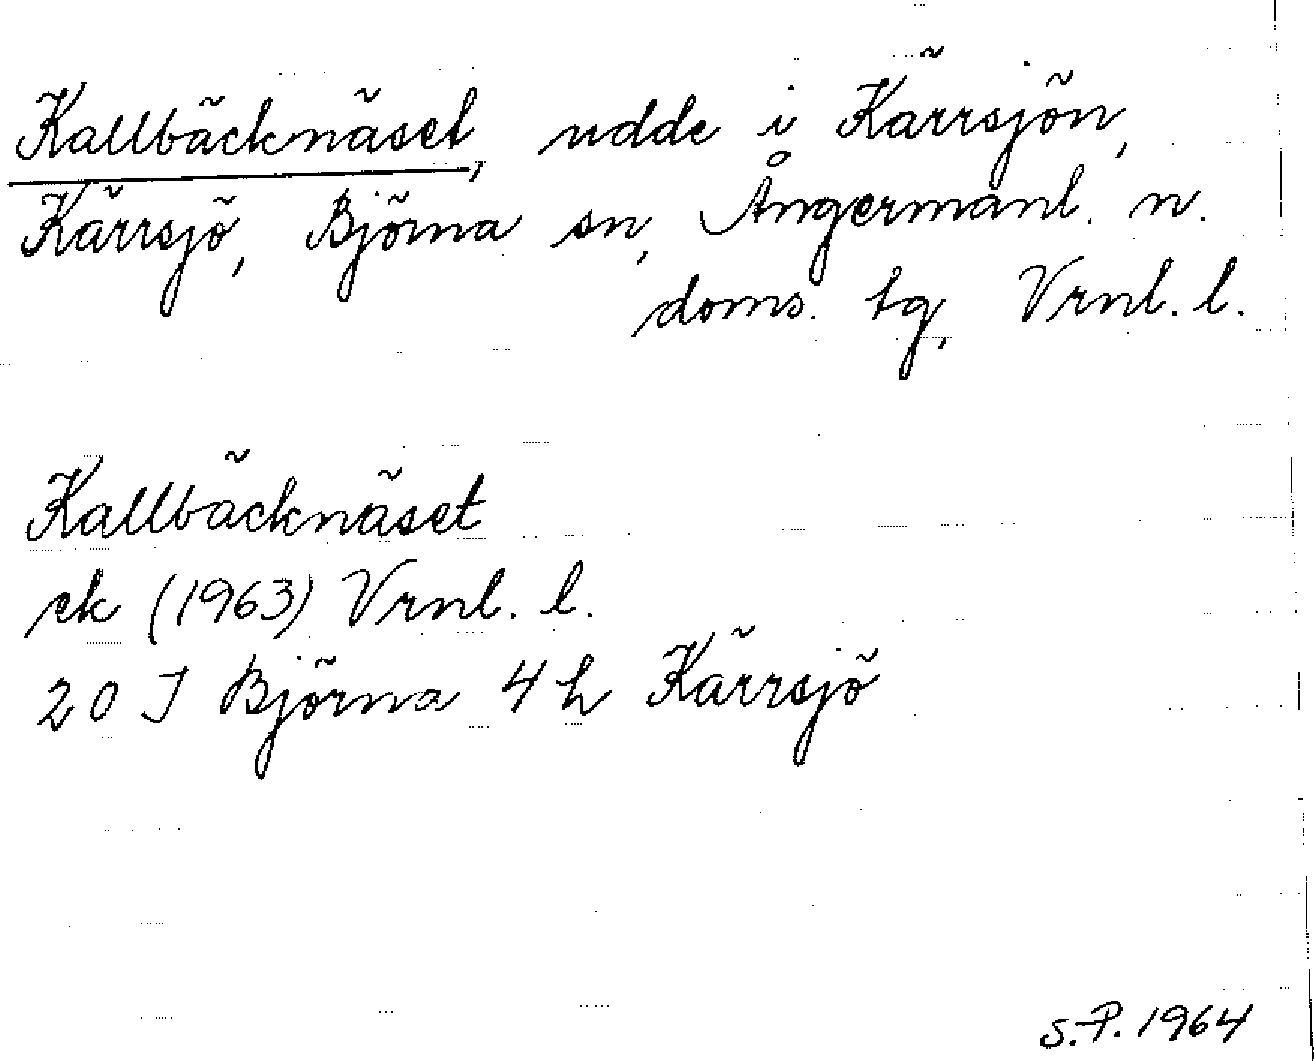 Kallbäcknäset, udde i Kärrsjön,
Kärrsjö, Björna sn, Ångermanl. n.
doms. tg, Vrnl. l.
Kallbäcknäset
ek (1963) Vrnl. l.
20 J Björna 4 h Kärrsjö
S.P. 1964